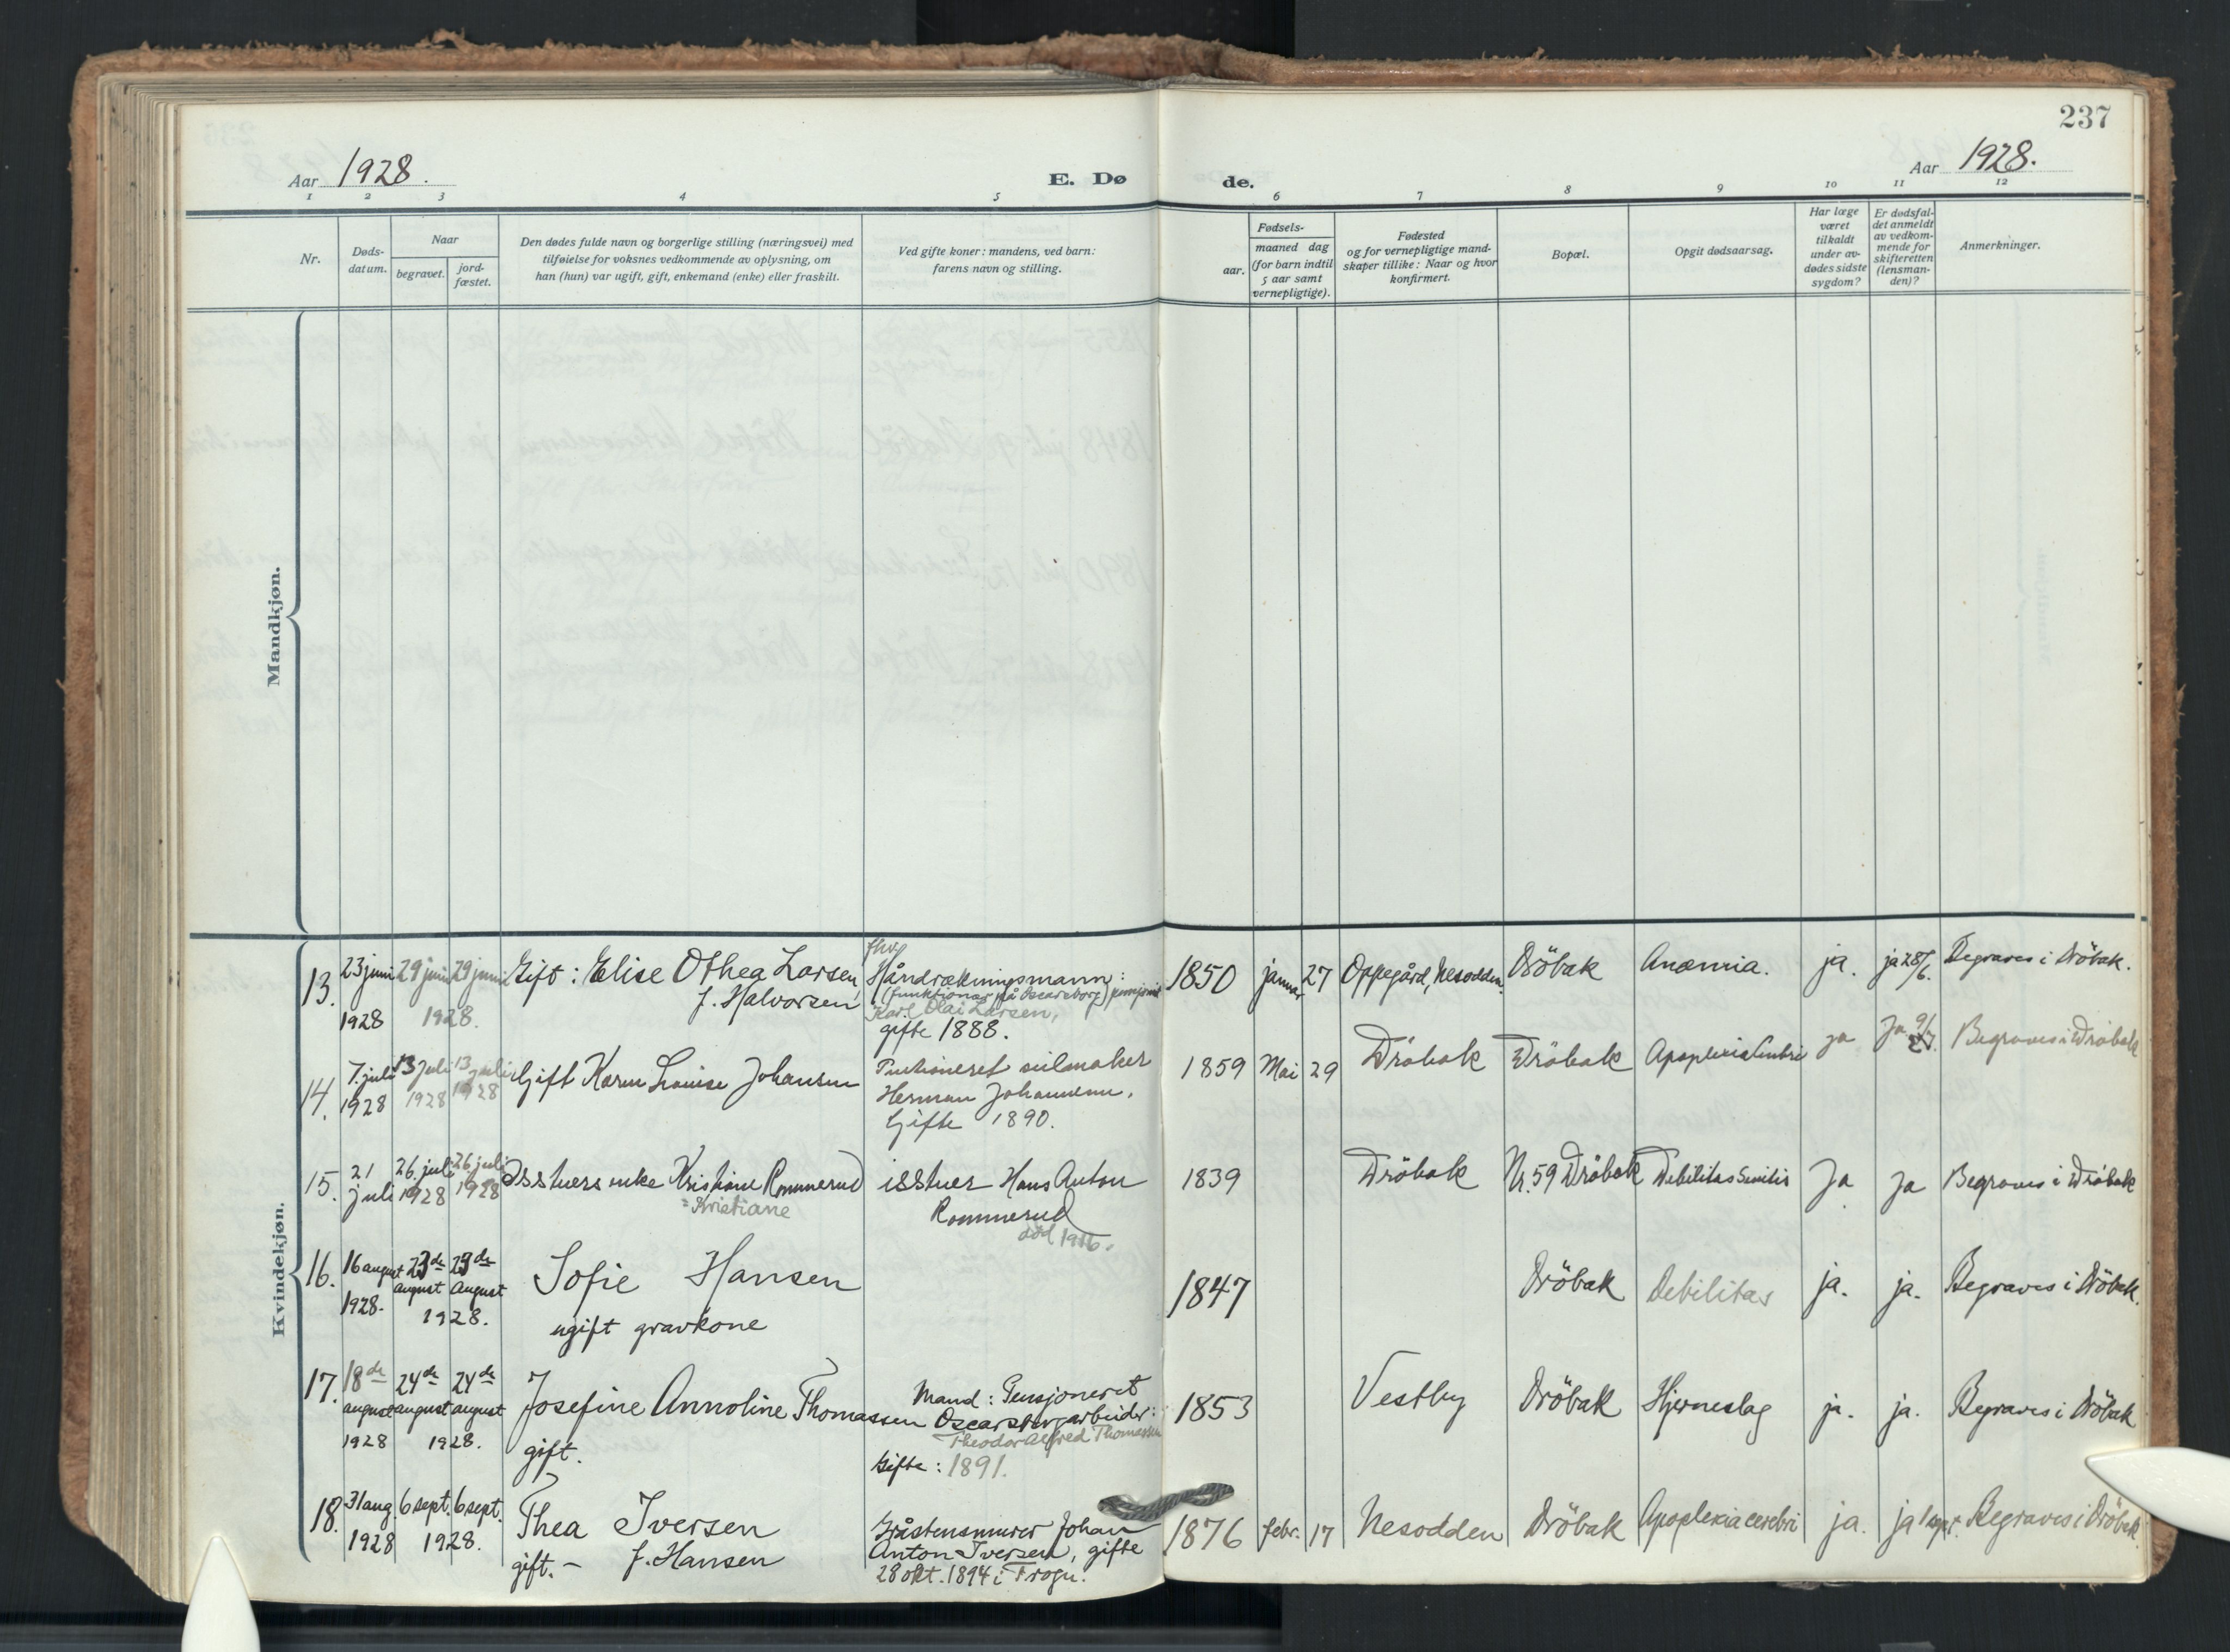 237
Aar 1928. E. Døde. Aar 1928.
1 2 3 4 5 6 7 8 9 10 11 12
Nr.
Døds-
datum.
Naar
begravet.
jord-
fæstet.
Den dødes fulde navn og borgerlige stilling (næringsvei) med
tilføielse for voksnes vedkommende av oplysning, om
han (hun) var ugift, gift, enkemand (enke) eller fraskilt.
Ved gifte koner: mandens, ved barn:
farens navn og stilling.
Fødsels-
aar.
maaned dag
(for barn indtil
5 aar samt
vernepligtige).
Fødested
og for vernepligtige mand-
skaper tillike: Naar og hvor
konfirmert.
Bopæl.
Opgit dødsaarsag.
Har læge
været
tilkaldt
under av-
dødes sidste
sygdom?
Er dødsfal-
det anmeldt
av vedkom-
mende for
skifteretten
(lensman-
den)?
Anmerkninger.
Mandkjøn.
Kvindekjøn.
13.
23 juni
1928
29 juni 29 juni
1928.
Gift: Elise Othea Larsen,
f. Halvorsen
fhv.
Håndrækningsmann:
(funktionær på Oscarsborg)
Karl Olai Larsen,
gifte 1888.
1850 januar 27 Oppegård, Nesodden. Dröbak Anæmia. ja. ja 28/6. Begraves i Dröbak.
14.
7. juli
1928
13 juli
1928
13 juli
1928
Gift Karen Louise Johansen
Pensioneret seilmaker
Herman Johannsen.
Gifte 1890.
1859 Mai 29 Dröbak Dröbak Apoplexia Cerebri ja Ja 9/7. Begraves i Dröbak
15.
21
juli
26. juli
1928
26 juli
1928
Isstuers enke Kristiane Rommerud
= Kristiane
isstuer Hans Anton
Rommerud
död 1916.
1839 Dröbak Nr. 59 Dröbak Debilitas Senilis Ja ja Begraves i Dröbak
16.
16 august
1928.
23de 23de
august august
1928.
Sofie Hansen
ugift gravkone
1847 Dröbak Debilitas ja. ja. Begraves i Dröbak.
17.
18de
august
1928
24de 24de
august august
1928.
Josefine Annoline Thomassen
gift.
Mand: Pensjoneret
Oscarsborgarbeider:
Theodor Alfred Thomassen
Gifte: 1891.
1853 Vestby Dröbak Hjerneslag ja. ja. Begraves i Dröbak
18.
31 aug.
1928
6 sept. 6 sept.
1928.
Thea Iversen
gift. – f. Hansen
Gråstensmurer Johan
Anton Iversen, gifte
28 okt. 1894 i Frogn.
1876 febr. 17 Nesodden Dröbak Apoplexia cerebri ja. ja 1 sept. Begraves i Dröbak.